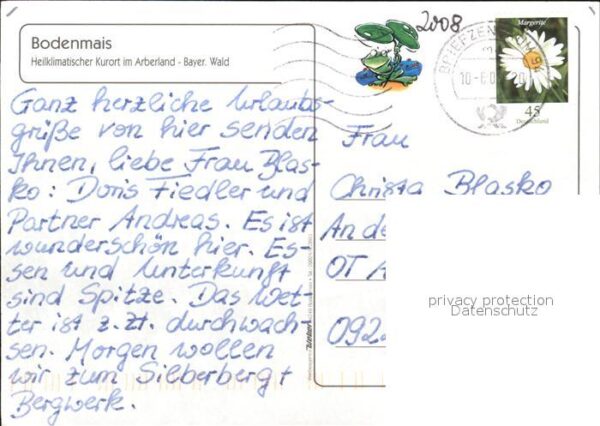 Bodenmais
Heilklimatischer Kurort im Arberland - Bayer. Wald
Ganz herzliche Urlaubs-
grüße von hier senden
Ihnen, liebe Frau Blas-
ko: Doris Fiedler und
Partner Andreas. Es ist
wunderschön hier. Es-
sen und Unterkunft
sind Spitze. Das Wet-
ter ist z. Zt. durchwach
sen. Morgen wollen
wir zum Silberberg +
Bergwerk.
2008
BRIEFZENTRUM 94
Margerite
45
Deutschland
Frau
Christa Blasko
An de
OT A
092
privacy protection
Datenschutz